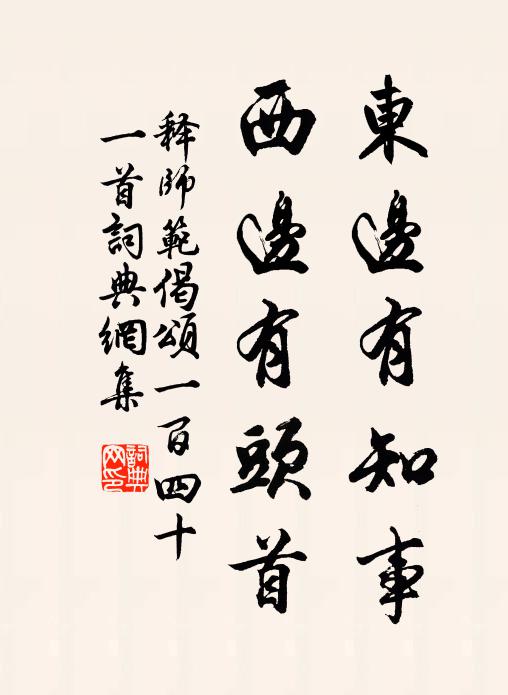 東邊有知事
西邊有頭首
释師範偈頌一百四十
一首詞典網集
詞典網印